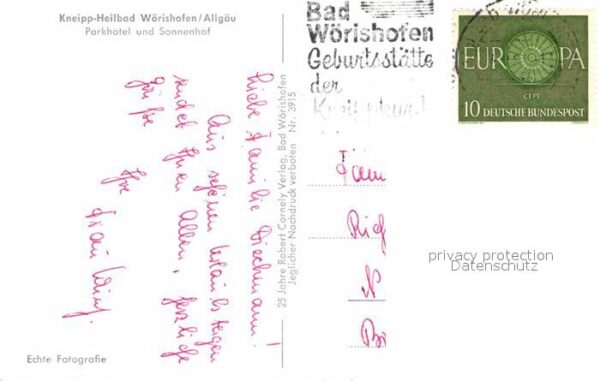 Kneipp-Heilbad Wörishofen/Allgäu
Parkhotel und Sonnenhof
Liebe Familie Diechmann!
Aus schönen Urlaubstagen
sendet Ihnen Allen, herzliche
Grüße
Ihre
Frau
Echte Fotografie
25 Jahre Robert Cornely Verlag, Bad Wörishofen
Jeglicher Nachdruck verboten Nr. 3915
Bad
Wörishofen
Geburtsstätte
der
Kneippkur!
EUROPA
CEPT
10 DEUTSCHE BUNDESPOST
Fam
N
privacy protection
Datenschutz